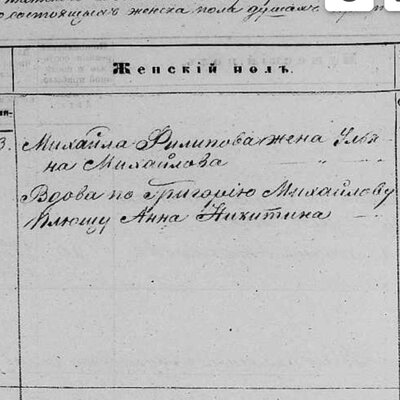 состоящимъ женска пола душамъ
Женскій полъ.
3.
Михайла Филипова жена Улья
на Михайлова
Вдова по Григорію Михайлову
Плющу Анна Никитина